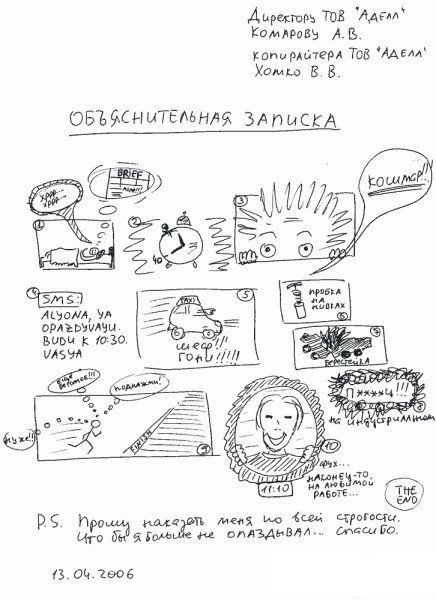 Директору ТОВ "Аделл"
Комарову А.В.
копирайтера ТОВ "Аделл"
Хомко В.В.
ОБЪЯСНИТЕЛЬНАЯ ЗАПИСКА
BRIEF
ХРРР...
ХРРР...
1
2
3
КОШМАР!!!
4
SMS:
ALYONA, YA
OPAZDYVAYU.
BUDU K 10:30.
VASYA
5
TAXI
ШЕФ!!!
ГОНИ!!!!!
ПРОБКА
НА
НИВКАХ
6
БЕРЕСТЕЙКА
Пхххц!!!
на индустриальном
ПОДНАЖМИ!
НУЖЕ!!
FINISH
9
10
11:10
ФУХ...
НАКОНЕЦ-ТО,
НА ЛЮБИМОЙ
РАБОТЕ...
THE
END
P.S. Прошу наказать меня по всей строгости.
Что бы я больше не опаздывал... Спасибо.
13.04.2006